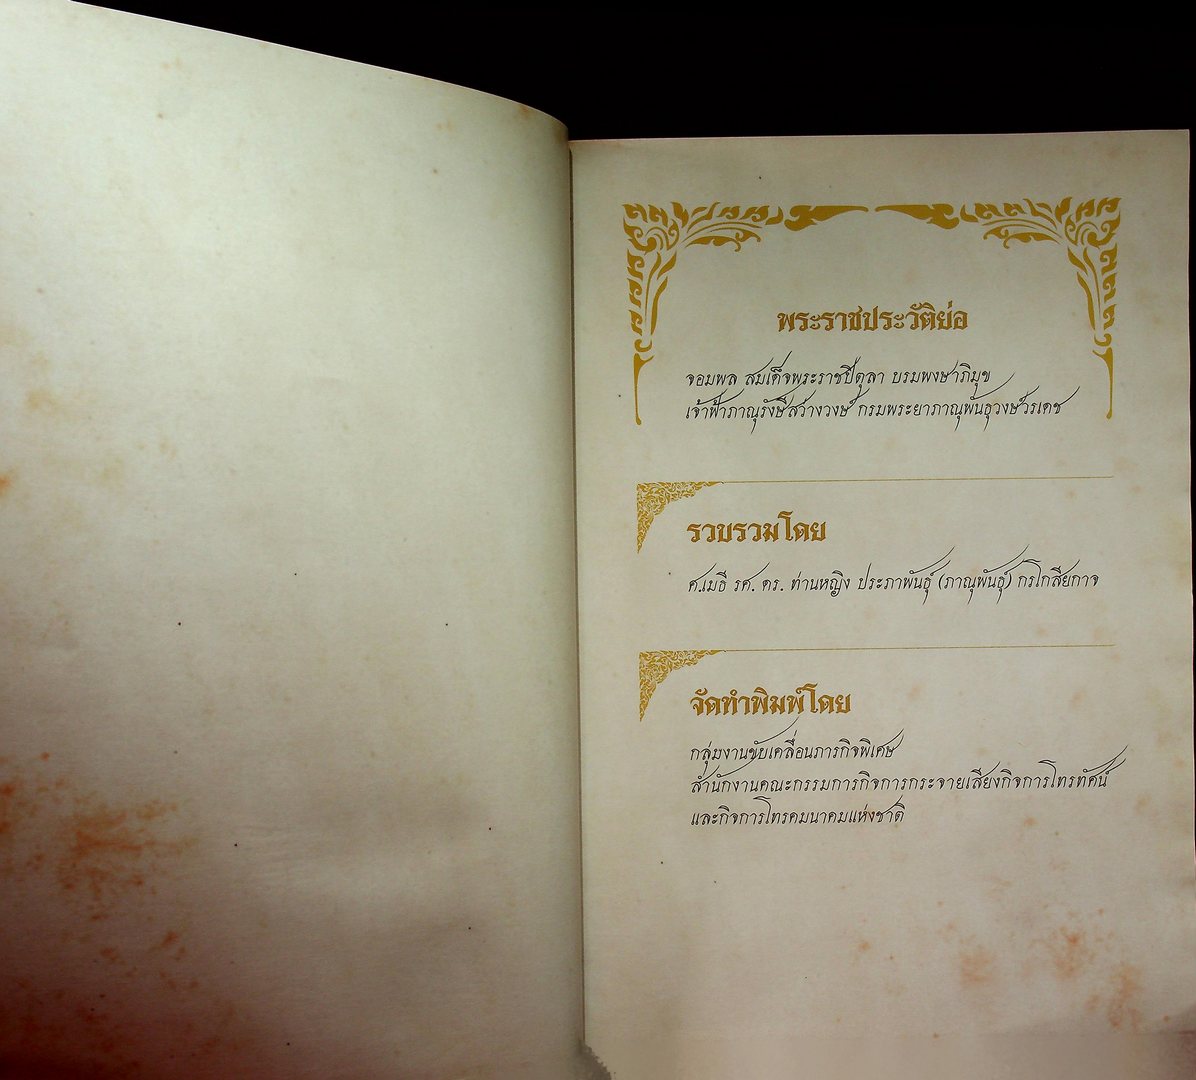 พระราชประวัติย่อ
จอมพล สมเด็จพระราชปิตุลา บรมพงษาภิมุข
เจ้าฟ้าภาณุรังษีสว่างวงษ์ กรมพระยาภาณุพันธุวงษ์วรเดช
รวบรวมโดย
ศ.เมธี รศ. ดร. ท่านหญิง ประภาพันธุ์ (ภาณุพันธุ์) กรโกสียกาจ
จัดทำพิมพ์โดย
กลุ่มงานขับเคลื่อนภารกิจพิเศษ
สำนักงานคณะกรรมการกิจการกระจายเสียงกิจการโทรทัศน์
และกิจการโทรคมนาคมแห่งชาติ